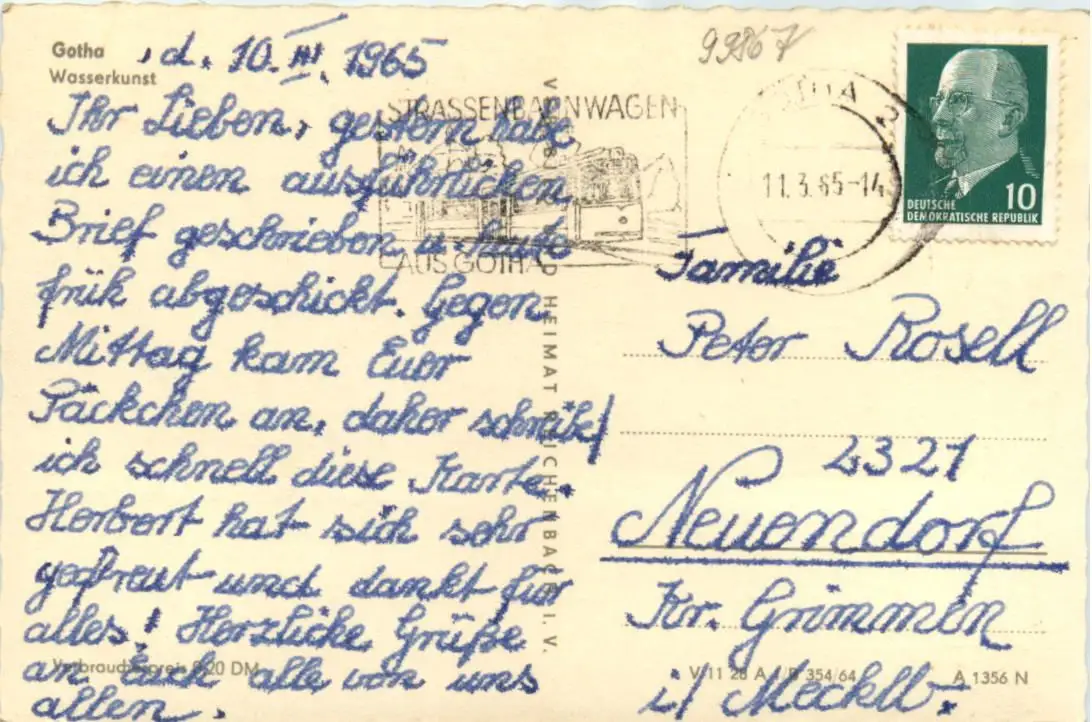 Gotha
Wasserkunst
, d. 10. III. 1965
Ihr Lieben, gestern habe
ich einen ausführlichen
Brief geschrieben u. heute
früh abgeschickt. Gegen
Mittag kam Euer
Päckchen an, daher schreibe
ich schnell diese Karte.
Herbert hat sich sehr
gefreut und dankt für
alles! Herzliche Grüße
an Euch alle von uns
allen.
Verbraucherpreis 0,20 DM
HEIMAT REICHENBACH I. V.
99867
STRASSENBAHNWAGEN
AUS GOTHA
GOTHA
11.3.65-14
DEUTSCHE
DEMOKRATISCHE REPUBLIK
10
Familie
Peter Rosell
2321
Neuendorf
Kr. Grimmen
i/ Mecklb.
A 1356 N